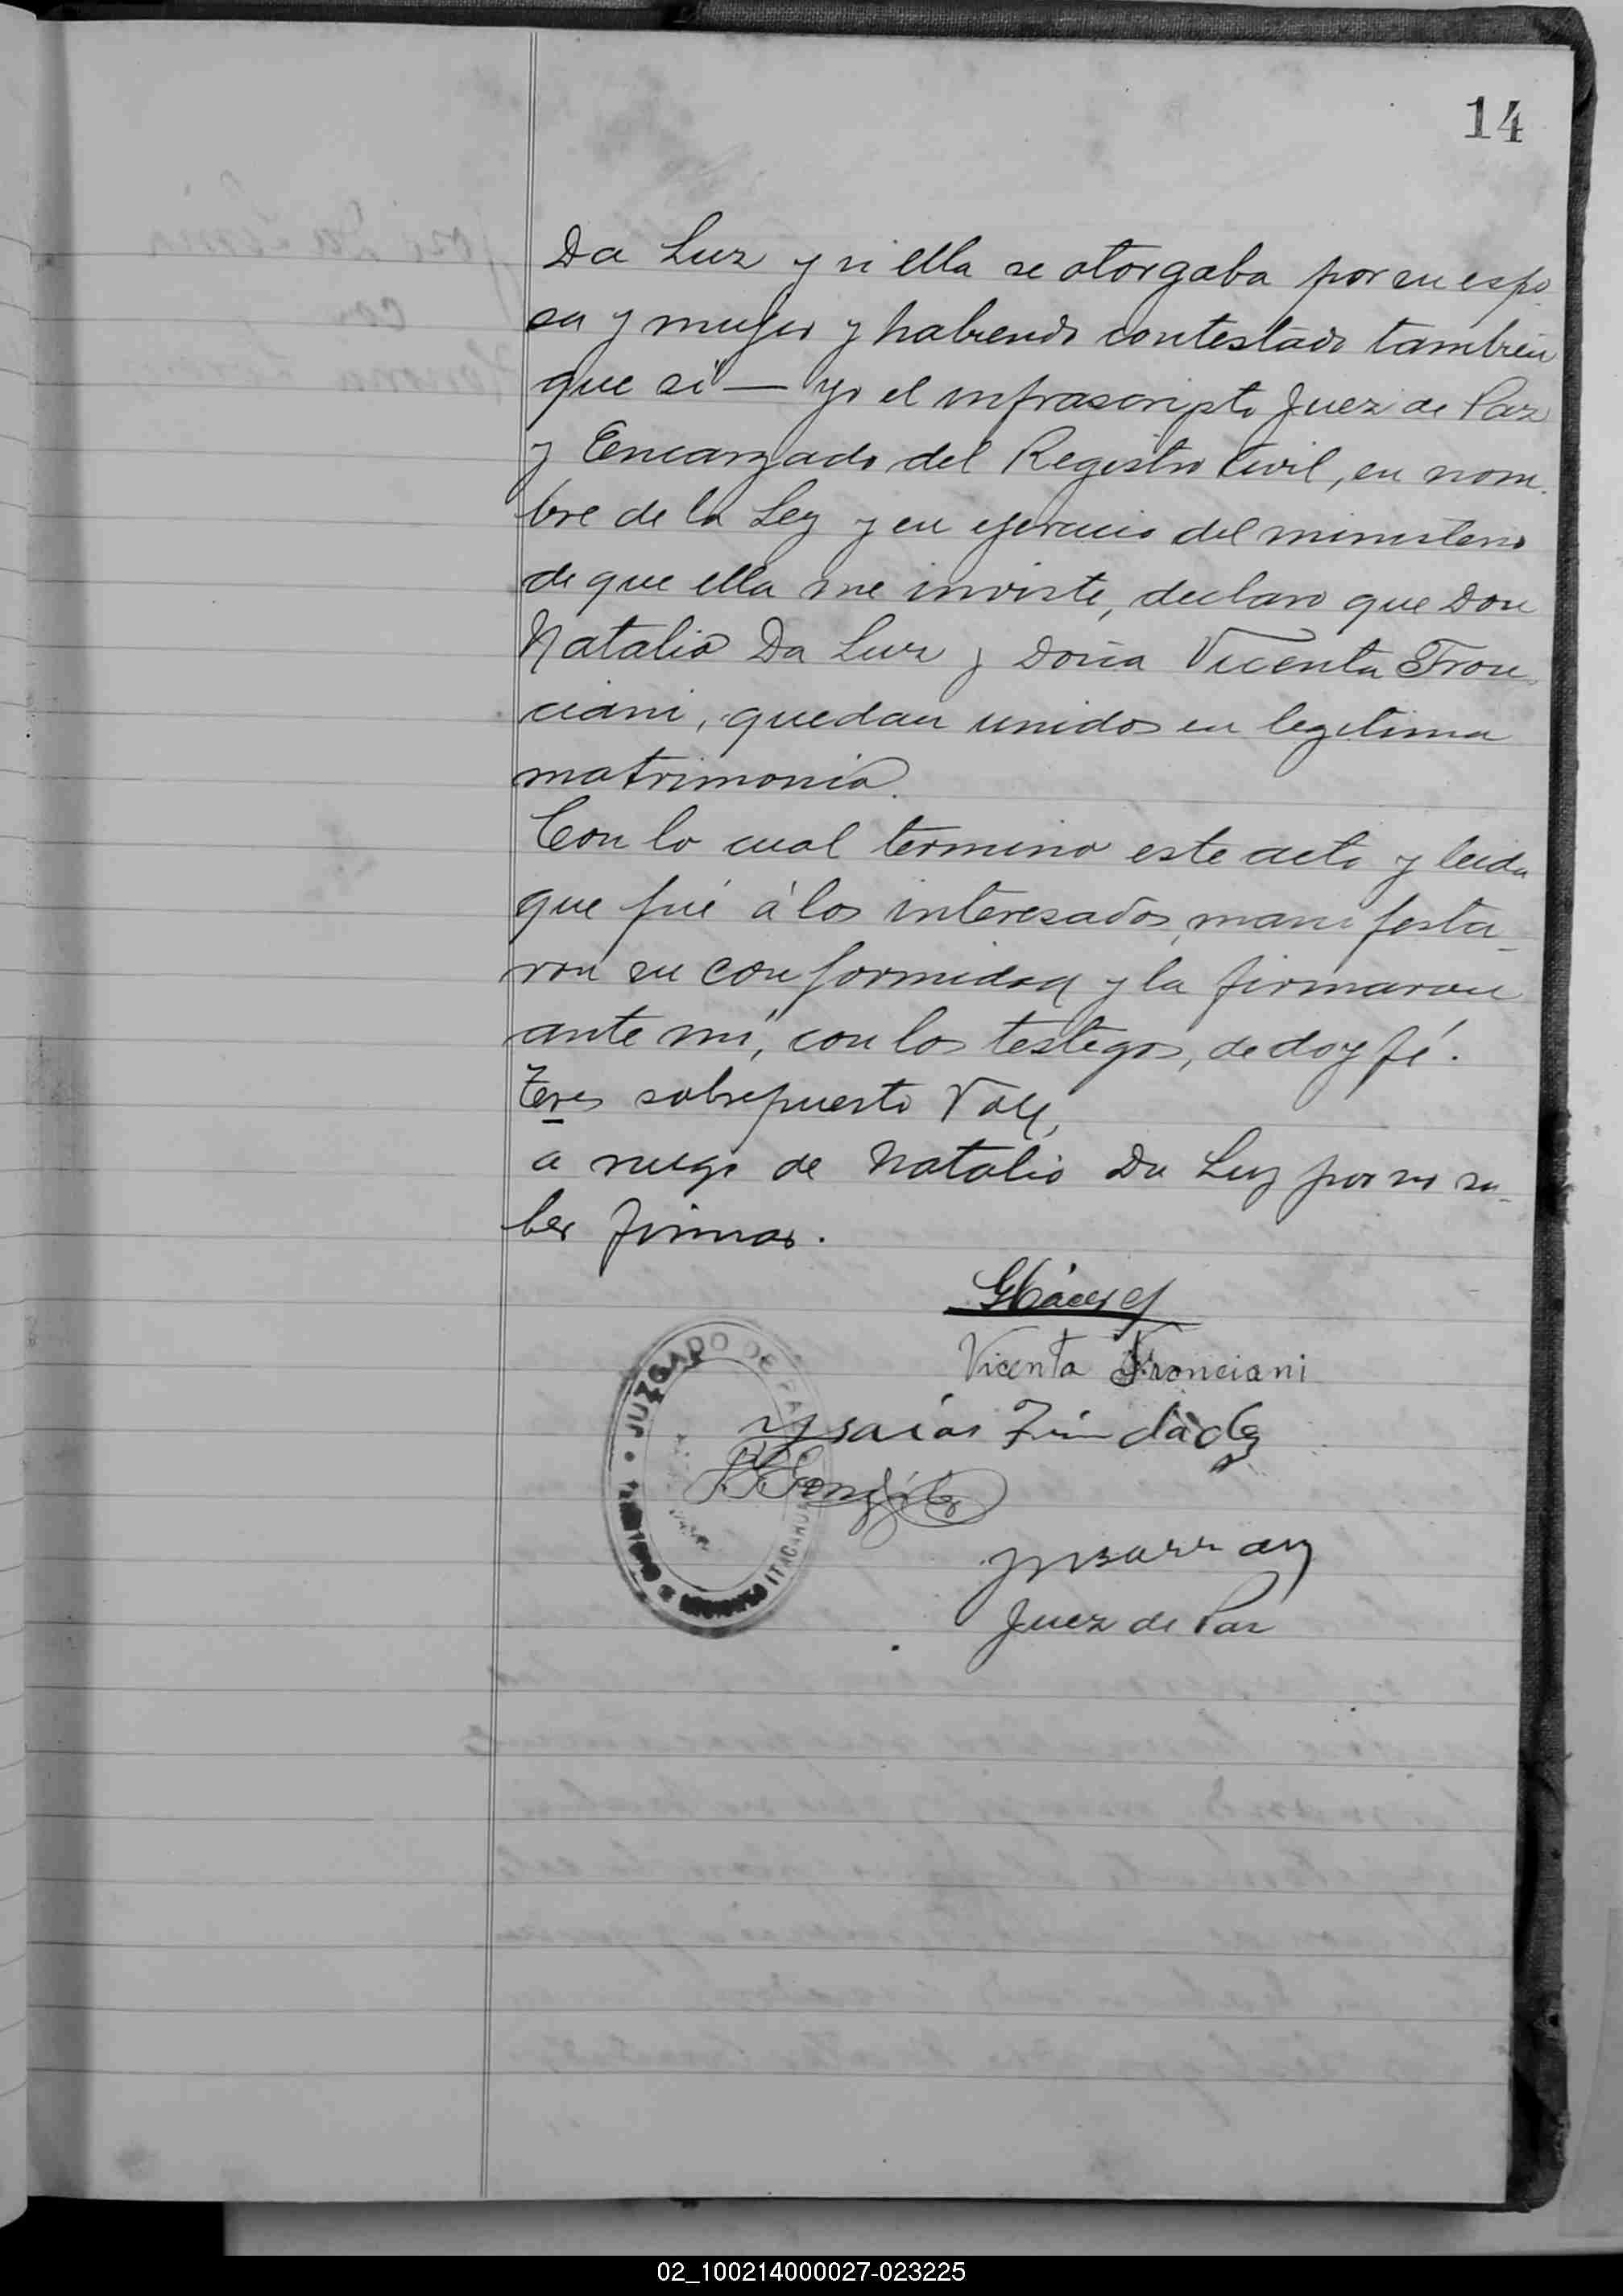 14
Da Luz y si ella se otorgaba por su espo
sa y mujer y habiendo contestado también
que si — yo el infrascripto Juez de Paz
y Encargado del Registro Civil, en nom
bre de la Ley y en ejercicio del ministerio
de que ella me inviste, declaro que Don
Natalio Da Luz y Doña Vicenta Fron
ciani, quedan unidos en legitimo
matrimonio.
Con lo cual termino este acto y leida
que fué á los interesados, manifesta_
ron su conformidad y la firmaron
ante mi, con los testigos, de doy fé.
sobrepuesto Vale,
a ruego de Natalio Da Luz por no sa_
ber firmar.
Vicenta Fronciani
Ysaías
Juez de Paz
JUZGADO DE PA
ITACARU
02_100214000027-023225